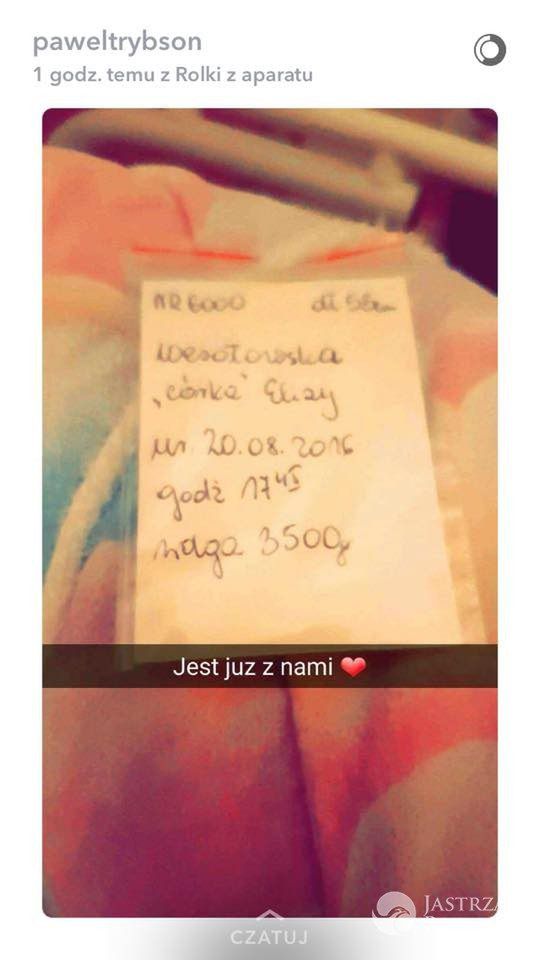 paweltrybson
1 godz. temu z Rolki z aparatu
NR 6000 dł 56cm
Wesołowska
„córka" Elizy
ur. 20.08.2016
godz 17⁴⁵
waga 3500g
Jest juz z nami ❤
JASTRZĄ
CZATUJ